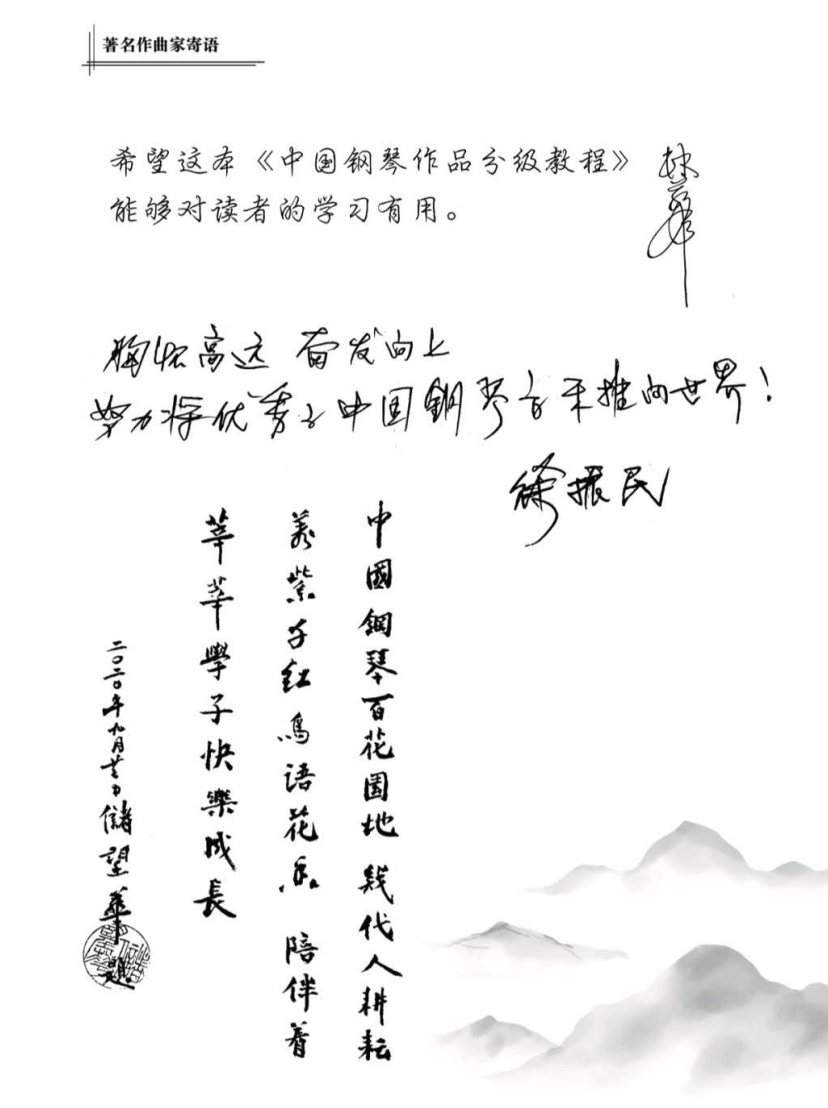 著名作曲家寄语
希望这本《中国钢琴作品分级教程》
能够对读者的学习有用。
林華
胸怀高远 奋发向上
努力将优秀之中国钢琴音乐推向世界！
徐振民
中國鋼琴百花園地 幾代人耕耘
萬紫千紅鳥語花香 陪伴着
莘莘學子快樂成長
二〇二〇年九月廿日儲望華題